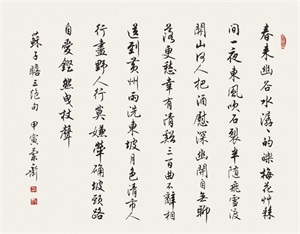 春來幽谷水潺〻的皪梅花艸棘
間一夜東風吹石裂半隨飛雪渡
關山何人把酒慰深幽開自無聊
落更愁幸有清谿三百曲不辭相
送到黃州雨洗東坡月色清市人
行盡野人行莫嫌犖确坡頭路
自愛鏗然曳杖聲
蘇子瞻三絕句 甲寅